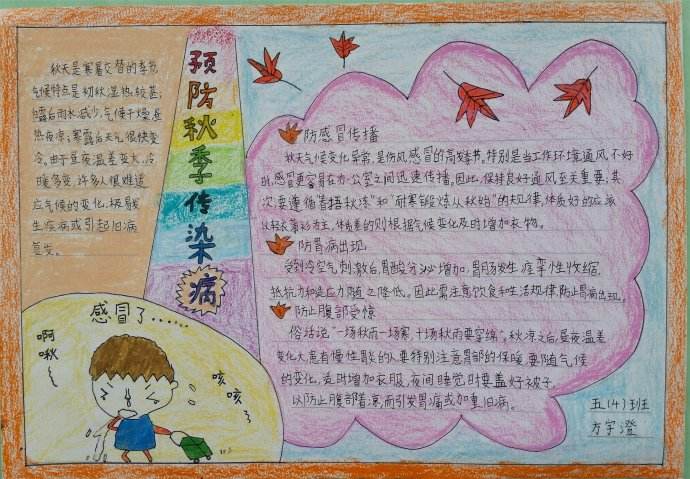 预防秋季传染病
秋天是寒暑交替的季节,
气候特点是初秋湿热较甚,
白露后雨水减少,气候干燥,昼
热夜凉;寒露后天气很快变
冷。由于昼夜温差变大,冷
暖多变,许多人很难适
应气候的变化,极易
生疾病或引起旧病
复发。
防感冒传播
秋天气候变化异常,是伤风感冒的高发季节,特别是当工作环境通风不好
时,感冒更容易在办公室之间迅速传播。因此,保持良好通风至关重要;其
次,要遵循“春捂秋冻”和“耐寒锻炼从秋始”的规律,体质好的应该
以轻衣薄衫为主,体质差的则根据气候变化及时增加衣物。
防胃病出现
受到冷空气刺激后,胃酸分泌增加,胃肠发生痉挛性收缩,
抵抗力和适应力随之降低。因此需注意饮食和生活规律,防止胃病出现。
防止腹部受惊
俗话说“一场秋雨一场寒,十场秋雨要穿绵”。秋凉之后,昼夜温差
变化大,患有慢性胃炎的人要特别注意胃部的保暖,要随气候
的变化,适时增加衣服,夜间睡觉时要盖好被子,
以防止腹部着凉,而引发胃痛或加重旧病。
五(4)班
方宇澄
感冒了……
啊啾~
咳咳~